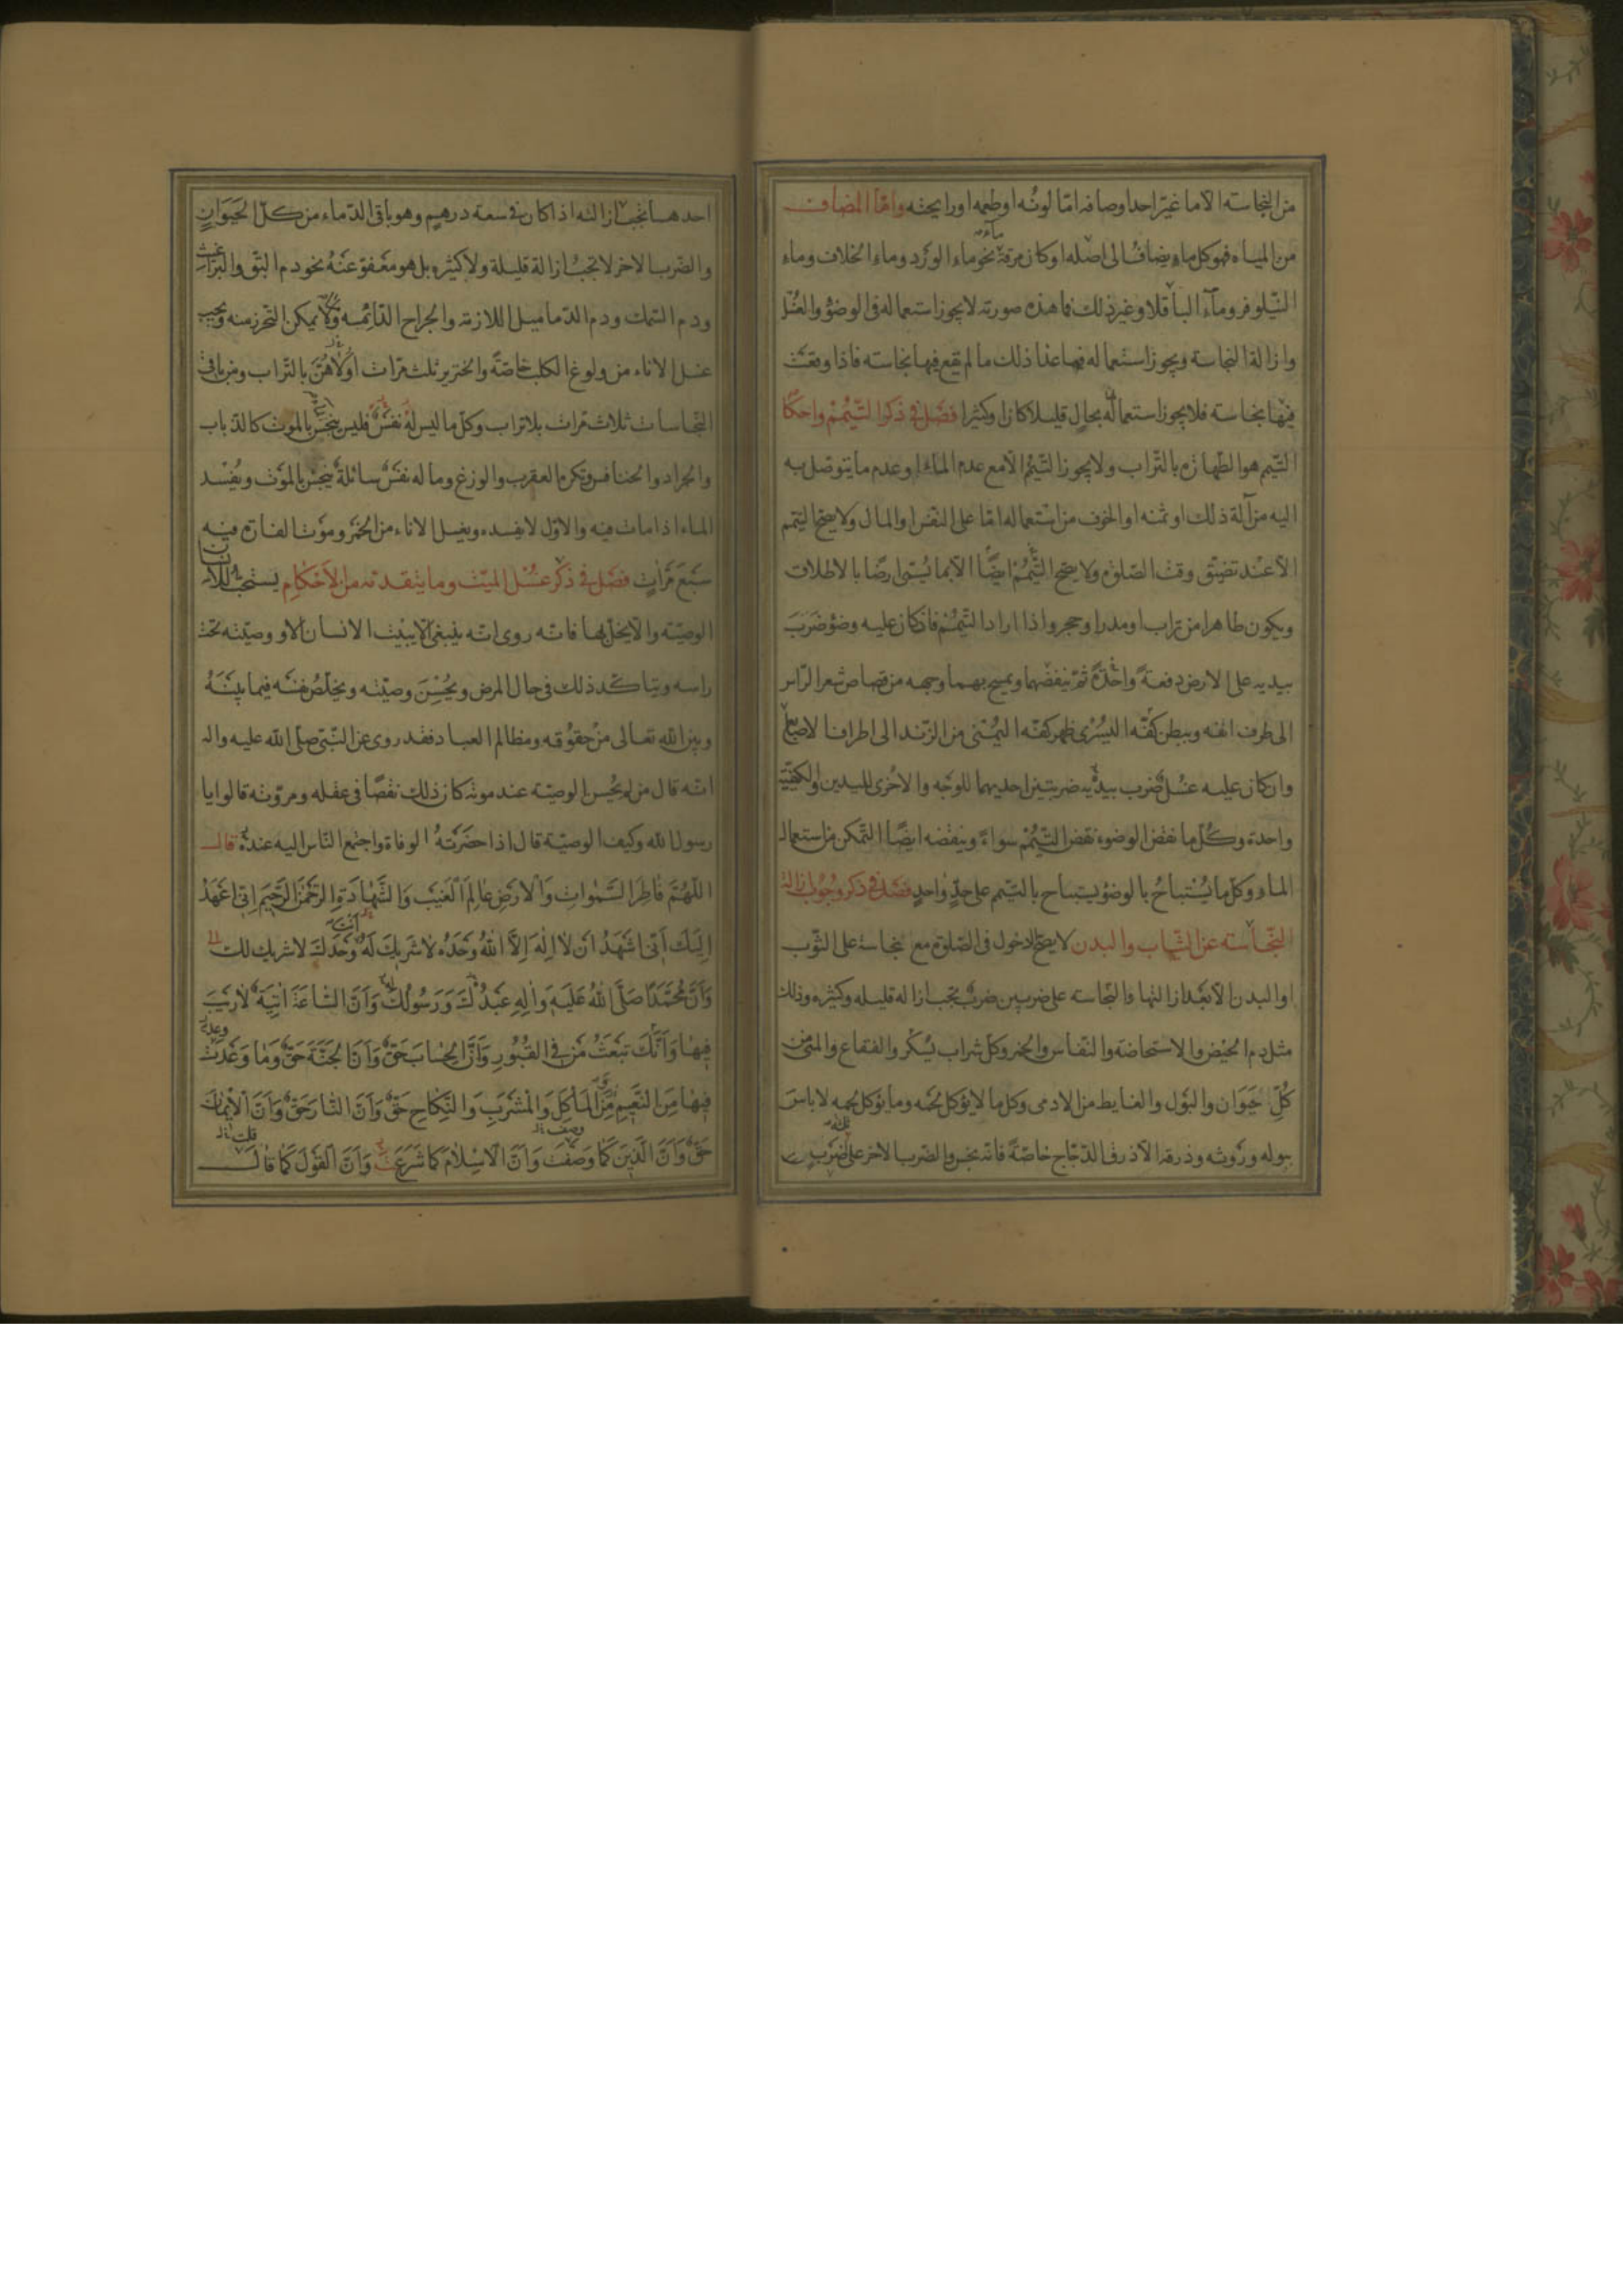 من النجاسة الا ما غير احد اوصافه اما لونه او طعمه او رايحته واما المضاف
من المياه فهو كل ماء يضاف الى اصله او كان مرقة نحو ماء الورد وماء الخلاف وماء
النيلوفر وماء الباقلا وغير ذلك فما هذه صورته لا يجوز استعماله فى الوضؤ والغسل
وازالة النجاسة ويجوز استعماله فيما عدا ذلك ما لم يقع فيها نجاسة فاذا وقعت
فيها نجاسة فلا يجوز استعماله بحال قليلا كان او كثيرا فصل فى ذكر التيمم واحكامه
التيمم هو الطهارة بالتراب ولا يجوز التيمم الا مع عدم الماء او عدم ما يتوصل به
اليه من آلة ذلك او ثمنه او الخوف من استعماله اما على النفس او المال ولا يصح التيمم
الا عند تضيق وقت الصلوة ولا يصح التيمم ايضا الا بما يسمى ارضا بالاطلاق
ويكون طاهرا من تراب او مدر او حجر واذا اراد التيمم فان كان عليه وضؤ ضرب
بيديه على الارض دفعة واحدة ثم ينفضهما ويمسح بهما وجهه من قصاص شعر الراس
الى طرف انفه وببطن كفه اليسرى ظهر كفه اليمنى من الزند الى اطراف الاصابع
وان كان عليه غسل ضرب بيديه ضربتين احديهما للوجه والاخرى لليدين والكيفية
واحدة وكل ما نقض الوضوء نقض التيمم سواء وينقضه ايضا التمكن من استعمال
الماء وكل ما يستباح بالوضؤ يستباح بالتيمم على حد واحد فصل فى ذكر وجوب ازالة
النجاسة عن الثياب والبدن لا يصح الدخول فى الصلوة مع نجاسة على الثوب
او البدن الا بعد ازالتها والنجاسة على ضربين ضرب تجب ازالة قليله وكثيره وذلك
مثل دم الحيض والاستحاضة والنفاس والخمر وكل شراب يسكر والفقاع والمنى من
كل حيوان والبول والغايط من الادمى وكل ما لا يؤكل لحمه وما يؤكل لحمه لا باس
ببوله وروثه وذرقه الا ذرق الدجاج خاصة فانه نجس والضرب الاخر على ضرب
احدهما تجب ازالته اذا كان فى سعة درهم وهو باقى الدماء من كل الحيوان
والضرب الاخر لا تجب ازالة قليله ولا كثيره بل هو معفو عنه نحو دم البق والبراغيث
ودم السمك ودم الدماميل اللازمة والجراح الدائمة ولا يمكن التحرز منه ويجب
غسل الاناء من ولوغ الكلب خاصة والخنزير ثلث مرات اولاهن بالتراب ومن باقى
النجاسات ثلاث مرات بلا تراب وكل ما ليس له نفس فليس ينجس بالموت كالذباب
والجراد والخنافس ويكره العقرب والوزغ وما له نفس سائلة ينجس بالموت ويفسد
الماء اذا مات فيه والاول لا يفسده ويغسل الاناء من الخمر وموت الفارة فيه
سبع مرات فصل فى ذكر غسل الميت وما يتقدمه من الاحكام يستحب للانسان
الوصية والا يخل بها فانه روى انه ينبغى الا يبيت الانسان الا ووصيته تحت
راسه ويتاكد ذلك فى حال المرض ويحسن وصيته ويخلص نفسه فيما بينه
وبين الله تعالى من حقوقه ومظالم العباد فقد روى عن النبى صلى الله عليه واله
انه قال من لم يحسن الوصية عند موته كان ذلك نقصا فى عقله ومروته قالوا يا
رسول الله وكيف الوصية قال اذا حضرته الوفاة واجتمع الناس اليه عنده قال
اللهم فاطر السموات والارض عالم الغيب والشهادة الرحمن الرحيم انى اعهد
اليك انى اشهد ان لا اله الا الله وحده لا شريك له انت وحدك لا شريك لك
وان محمدا صلى الله عليه واله عبدك ورسولك وان الساعة اتية لا ريب
فيها وانك تبعث من فى القبور وان الحساب حق وان الجنة حق وما وعدت
فيها من النعيم من المأكل والمشرب والنكاح حق وان النار حق وان الايمان
حق وان الدين كما وصفت وان الاسلام كما شرعت وان القول كما قال